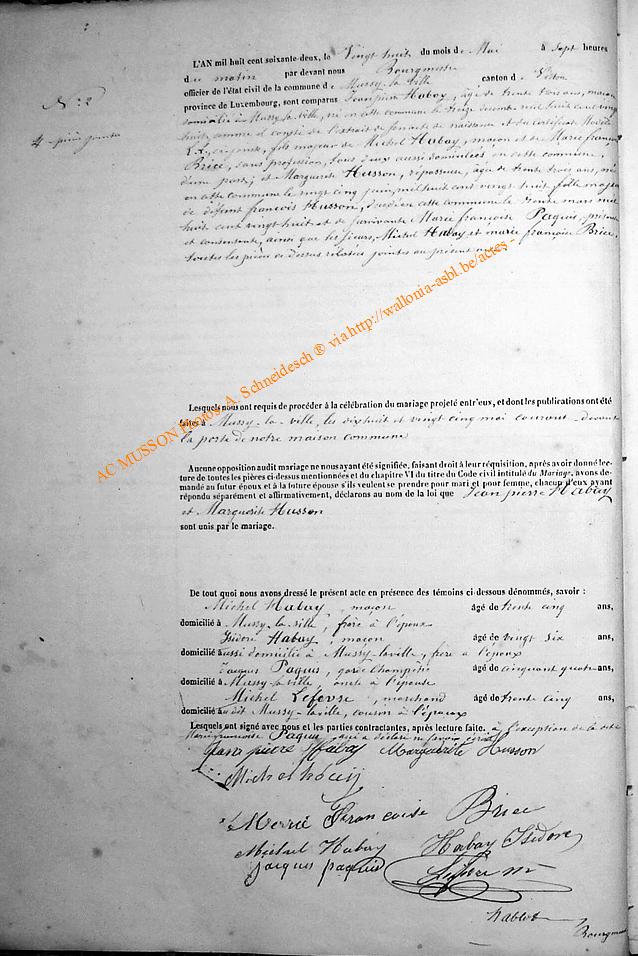 N° 2
4 pièces jointes
L'AN mil huit cent soixante-deux, le Vingt huit du mois de Mai à sept heures
du matin par devant nous Bourgmestre
officier de l'état civil de la commune de Mussy-la-ville canton de Virton
province de Luxembourg, sont comparus Jean pierre Habay, âgé de trente trois ans, maçon
domicilié à Mussy-la-ville, né en cette commune le treize décembre mil huit cent vingt
huit, comme il conste de l'extrait de son acte de naissance et du certificat Modèle
ci-joints, fils majeur de Michel Habay, maçon et de Marie françoise
Brice, sans profession, tous deux aussi domiciliés en cette commune,
d'une part; et Marguerite Husson, repasseuse, âgée de trente trois ans, née
en cette commune le vingt cinq juin mil huit cent vingt huit, fille majeure
de défunt françois Husson, décédé en cette commune le trente mars mil
huit cent vingt huit et de survivante Marie françoise Paquis, présente
et consentante, ainsi que les sieurs, Michel Habay et marie françoise Brice,
toutes les pièces ci-dessus relatées jointes au présent acte,
Lesquels nous ont requis de procéder à la célébration du mariage projeté entr'eux, et dont les publications ont été
faites à Mussy-la-ville, les dix huit et vingt cinq mai courant, devant
la porte de notre maison commune
Aucune opposition audit mariage ne nous ayant été signifiée, faisant droit à leur réquisition, après avoir donné lec-
ture de toutes les pièces ci-dessus mentionnées et du chapitre VI du titre du Code civil intitulé du Mariage, avons de-
mandé au futur époux et à la future épouse s'ils veulent se prendre pour mari et pour femme, chacun d'eux ayant
répondu séparément et affirmativement, déclarons au nom de la loi que Jean pierre Habay
et Marguerite Husson
sont unis par le mariage.
De tout quoi nous avons dressé le présent acte en présence des témoins ci-dessous dénommés, savoir :
Michel Habay, maçon âgé de trente cinq ans,
domicilié à Mussy-la-ville, frère à l'époux
Isidore Habay, maçon âgé de vingt six ans,
domicilié aussi domicilié à Mussy-la-ville, frère à l'époux
Jacques Paquis, garde champêtre âgé de cinquante quatre ans,
domicilié à Mussy-la-ville oncle à l'épouse
Michel Lefevre, marchand âgé de trente cinq ans,
domicilié audit Mussy-la-ville, cousin à l'époux
Lesquels ont signé avec nous et les parties contractantes, après lecture faite. à l'exception de la dite
Marie françoise Paquis qui a déclaré ne savoir écrire
Jean pierre Habay Marguerite Husson
Michel
Marie Francoise Brice
Michel Habay Habay Isidore
jacques paquis Lefevre m
Hablot
Bourgmest
AC MUSSON Photos A. Schneidesch ® via http://wallonia-asbl.be/actes -